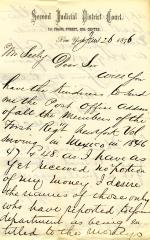 Second Judicial District Court,
New York, 26 1876
Mr Seely Dear Sir
Will you
have the kindness to send
me the Post Office Address
of all the Members of the
First Regt New York Vol
in Mexico in 1846
47 & 48. as I have as
yet received no portion
of my money I desire
the names of those only
who have reported to your
department as being en
titled to the moneys